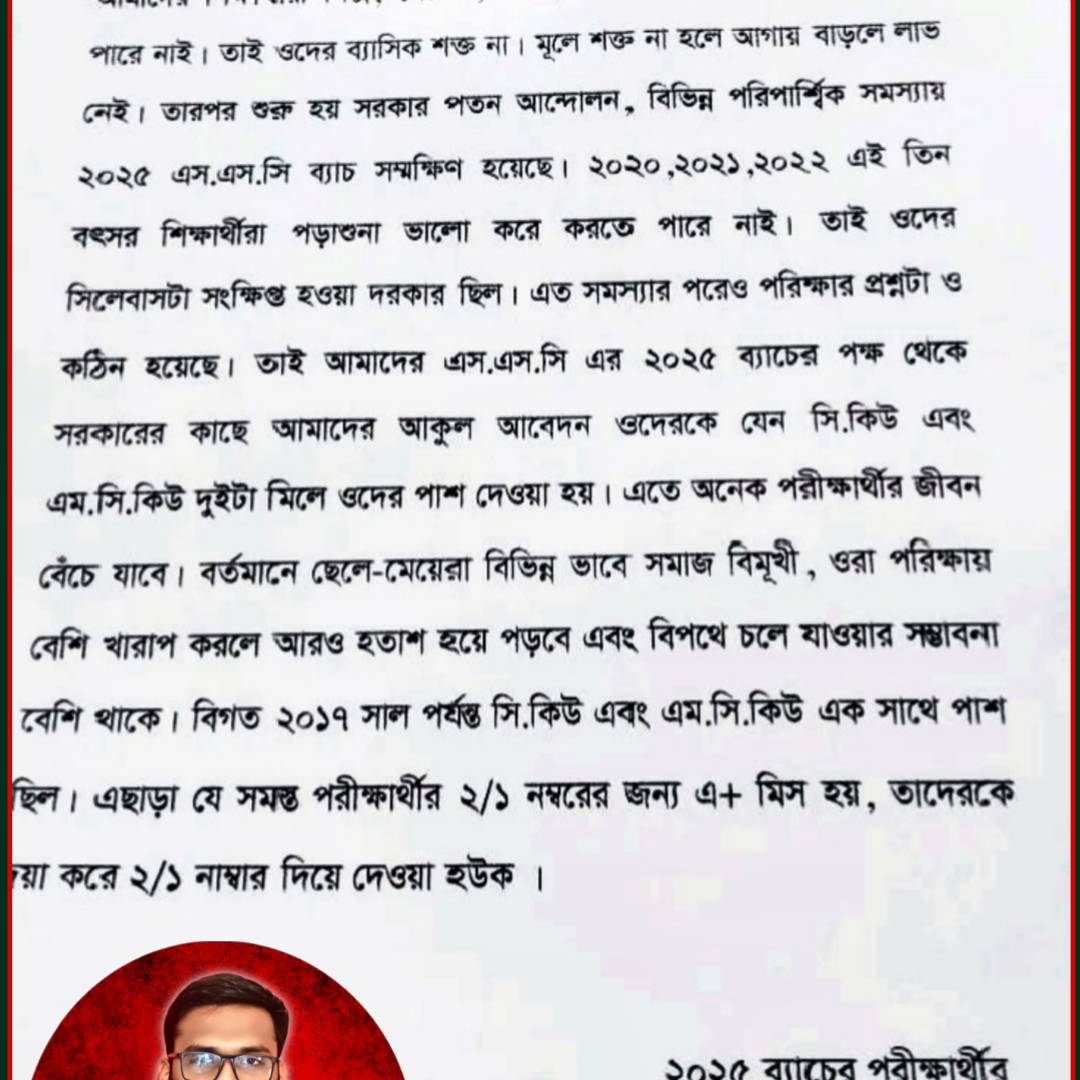 পারে নাই। তাই ওদের ব্যাসিক শক্ত না। মূলে শক্ত না হলে আগায় বাড়লে লাভ
নেই। তারপর শুরু হয় সরকার পতন আন্দোলন, বিভিন্ন পরিপার্শ্বিক সমস্যায়
২০২৫ এস.এস.সি ব্যাচ সম্মক্ষিণ হয়েছে। ২০২০,২০২১,২০২২ এই তিন
বৎসর শিক্ষার্থীরা পড়াশুনা ভালো করে করতে পারে নাই। তাই ওদের
সিলেবাসটা সংক্ষিপ্ত হওয়া দরকার ছিল। এত সমস্যার পরেও পরিক্ষার প্রশ্নটা ও
কঠিন হয়েছে। তাই আমাদের এস.এস.সি এর ২০২৫ ব্যাচের পক্ষ থেকে
সরকারের কাছে আমাদের আকুল আবেদন ওদেরকে যেন সি.কিউ এবং
এম.সি.কিউ দুইটা মিলে ওদের পাশ দেওয়া হয়। এতে অনেক পরীক্ষার্থীর জীবন
বেঁচে যাবে। বর্তমানে ছেলে-মেয়েরা বিভিন্ন ভাবে সমাজ বিমূখী, ওরা পরিক্ষায়
বেশি খারাপ করলে আরও হতাশ হয়ে পড়বে এবং বিপথে চলে যাওয়ার সম্ভাবনা
বেশি থাকে। বিগত ২০১৭ সাল পর্যন্ত সি.কিউ এবং এম.সি.কিউ এক সাথে পাশ
ছিল। এছাড়া যে সমস্ত পরীক্ষার্থীর ২/১ নম্বরের জন্য এ+ মিস হয়, তাদেরকে
য়া করে ২/১ নাম্বার দিয়ে দেওয়া হউক।
২০২৫ ব্যাচের পরীক্ষার্থীর